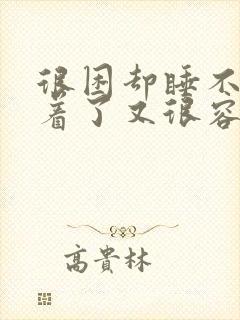 很困却睡不
着了又很容
高貴林